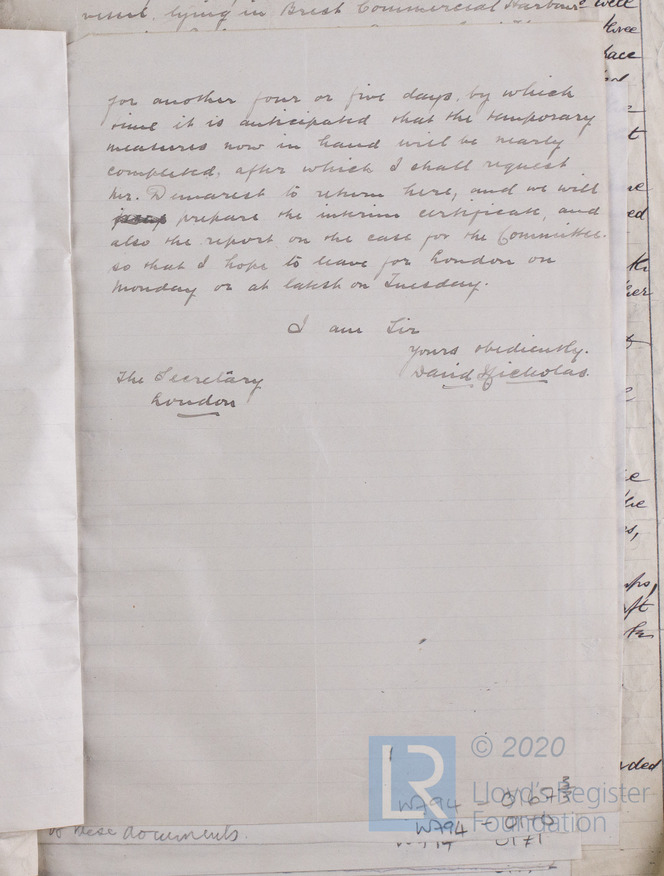 vessel, lying in Brest Commercial Harbour
for another four or five days, by which
time it is anticipated that the temporary
measures now in hand will be nearly
completed, after which I shall request
Mr. Demarest to return here, and we will
prepare the interim certificate, and
also the report on the case for the Committee.
so that I hope to leave for London on
Monday or at latest on Tuesday.
I am Sir
Yours obediently.
David Nicholas.
The Secretary
London
© 2020
LR
Lloyd's Register
Foundation
W794 - 0167
W794 - 0170
0171
of these documents.